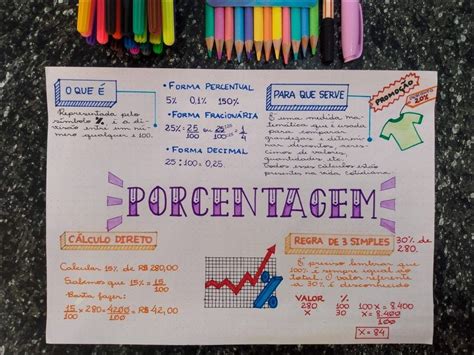 O QUE É
Representada pelo
símbolo %, é a di-
visão entre um nú-
mero qualquer e 100.
• FORMA PERCENTUAL
5% 0.1% 150%
• FORMA FRACIONÁRIA
25% = 25/100 ou = 1/4
• FORMA DECIMAL
25 : 100 = 0,25.
PARA QUE SERVE
É uma medida ma-
temática que é usada
para comparar
grandezas e
nar descontos,
cimos de valores,
quantidades etc.
Todos esses cálculos estão
presentes na vida cotidiana.
PROMOÇÃO
20%
PORCENTAGEM
CÁLCULO DIRETO
Calcular 15% de R$ 280,00
Sabemos que 15% = 15/100
Basta fazer:
15/100 × 280 = 4200/100 = R$ 42,00
REGRA DE 3 SIMPLES
30% de
280.
É preciso lembrar que
100% é sempre igual ao
total. O valor referente
a 30% é desconhecido
VALOR %
280 100
X 30
100 X = 8.400
X = 8.400/100
X = 84